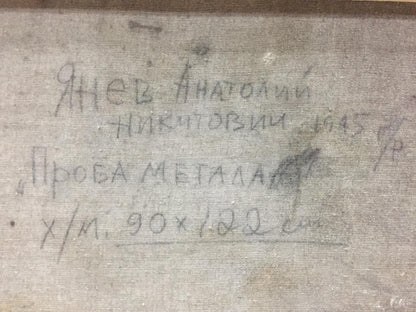 Янев Анатолий
Никитович 1945 г/р
„Проба метала"
х/м. 90х122 см